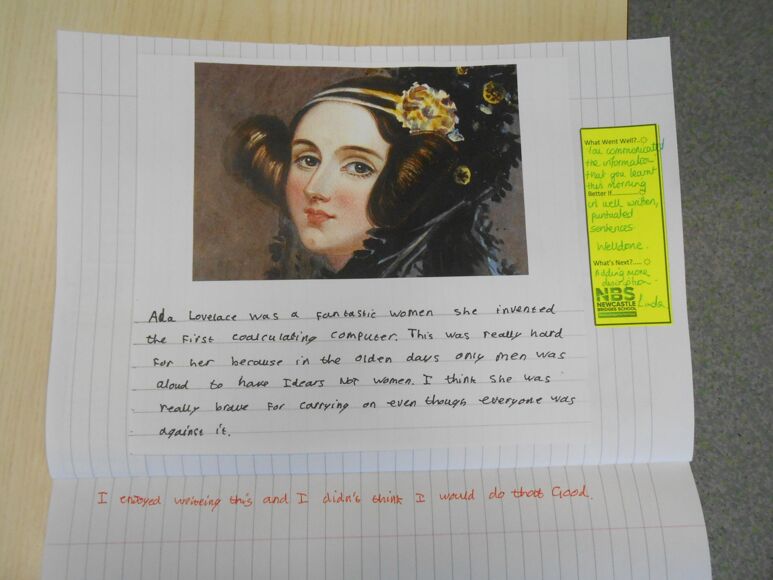 Ada Lovelace was a fantastic women she invented
the first coalculating computer. This was really hard
for her because in the olden days only men was
aloud to have Idears Not women. I think she was
really brave for carrying on even though everyone was
against it.
I enjoyed writeing this and I didn't think I would do that Good.
What Went Well?..
You communicated
the information
that you learnt
this morning
Better If..........
in well written,
puntuated
sentences
Welldone.
What's Next?.....
Adding more
description.
Linda
NBS
NEWCASTLE
BRIDGES SCHOOL